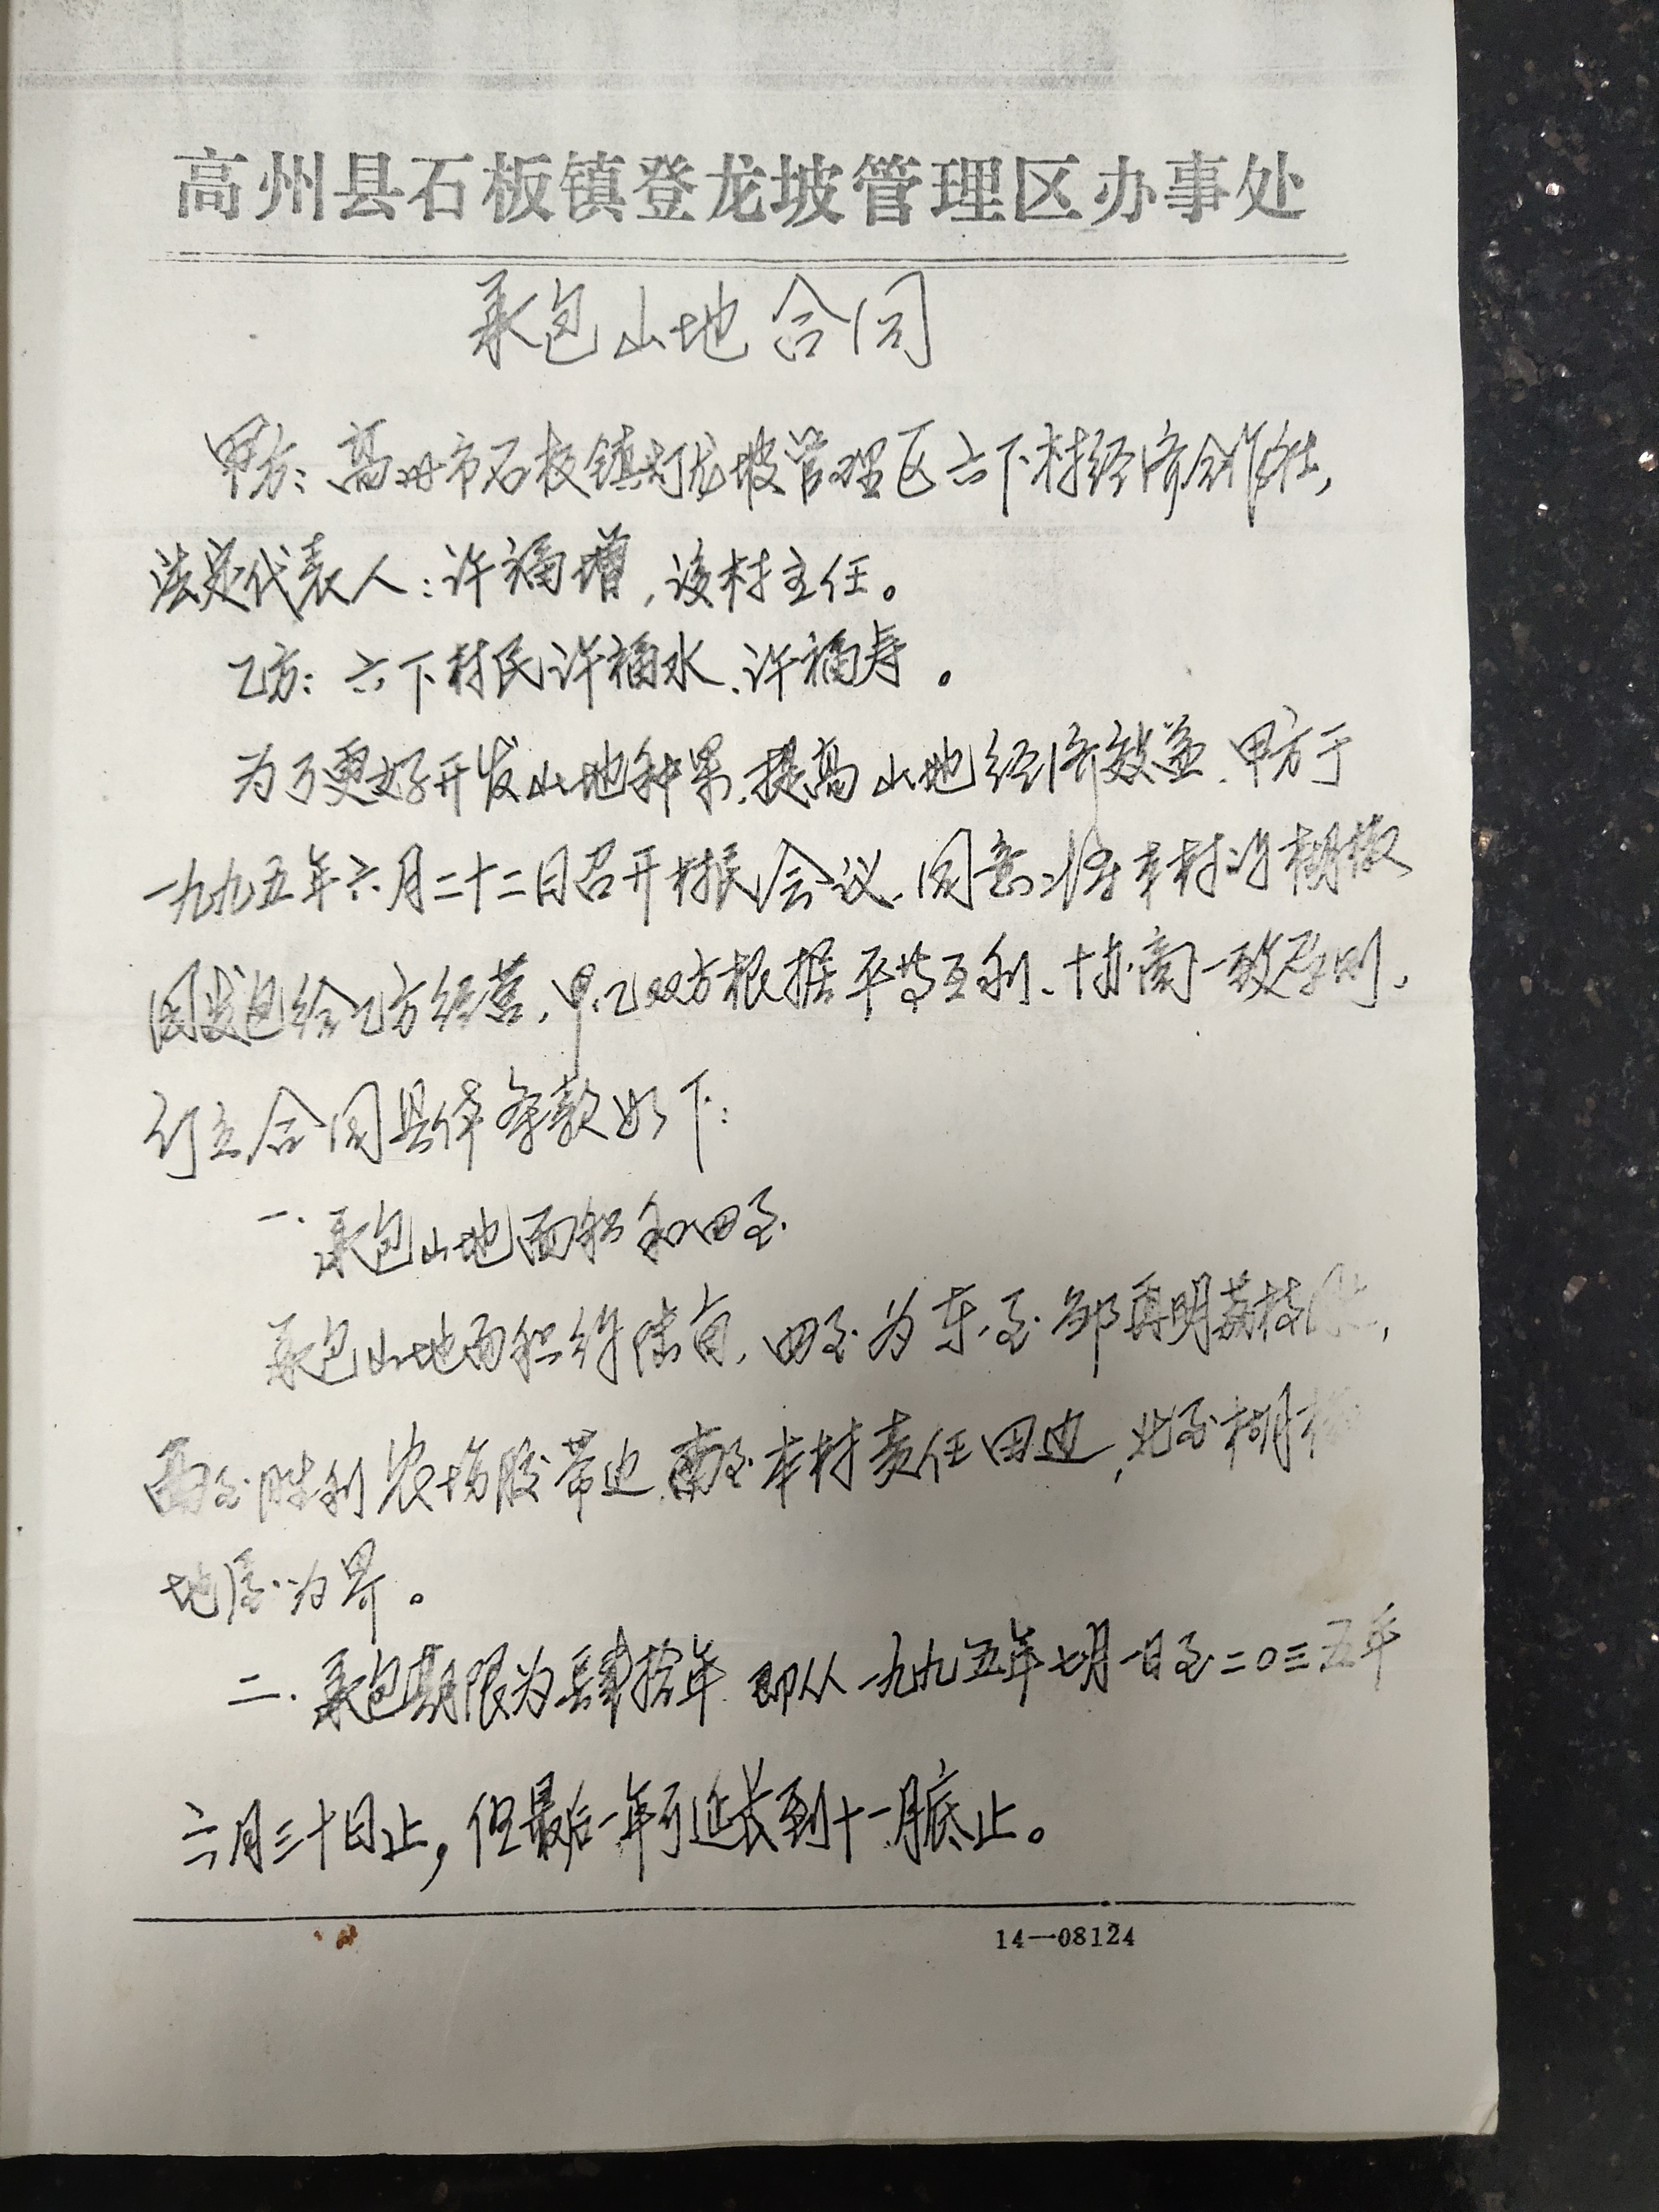 高州县石板镇登龙坡管理区办事处
承包山地合同
甲方：高州市石板镇灯龙坡管理区六下村经济合作社，
法定代表人：许福增，该村主任。
乙方：六下村民许福水、许福寿。
为了更好开发山地种果，提高山地经济效益，甲方于
一九九五年六月二十二日召开村民会议，同意将本村
发包给乙方经营，甲乙双方根据平等互利、协商一致原则，
订立合同具体条款如下：
一、承包山地面积和四至
承包山地面积约陆亩，四至为东至邹再明荔枝
西至胜利农场胶带边，南至本村责任田边，北至
地尾为界。
二、承包期限为肆拾年，即从一九九五年七月一日至二〇三五年
六月三十日止，但最后一年可延长到十一月底止。
14—08124